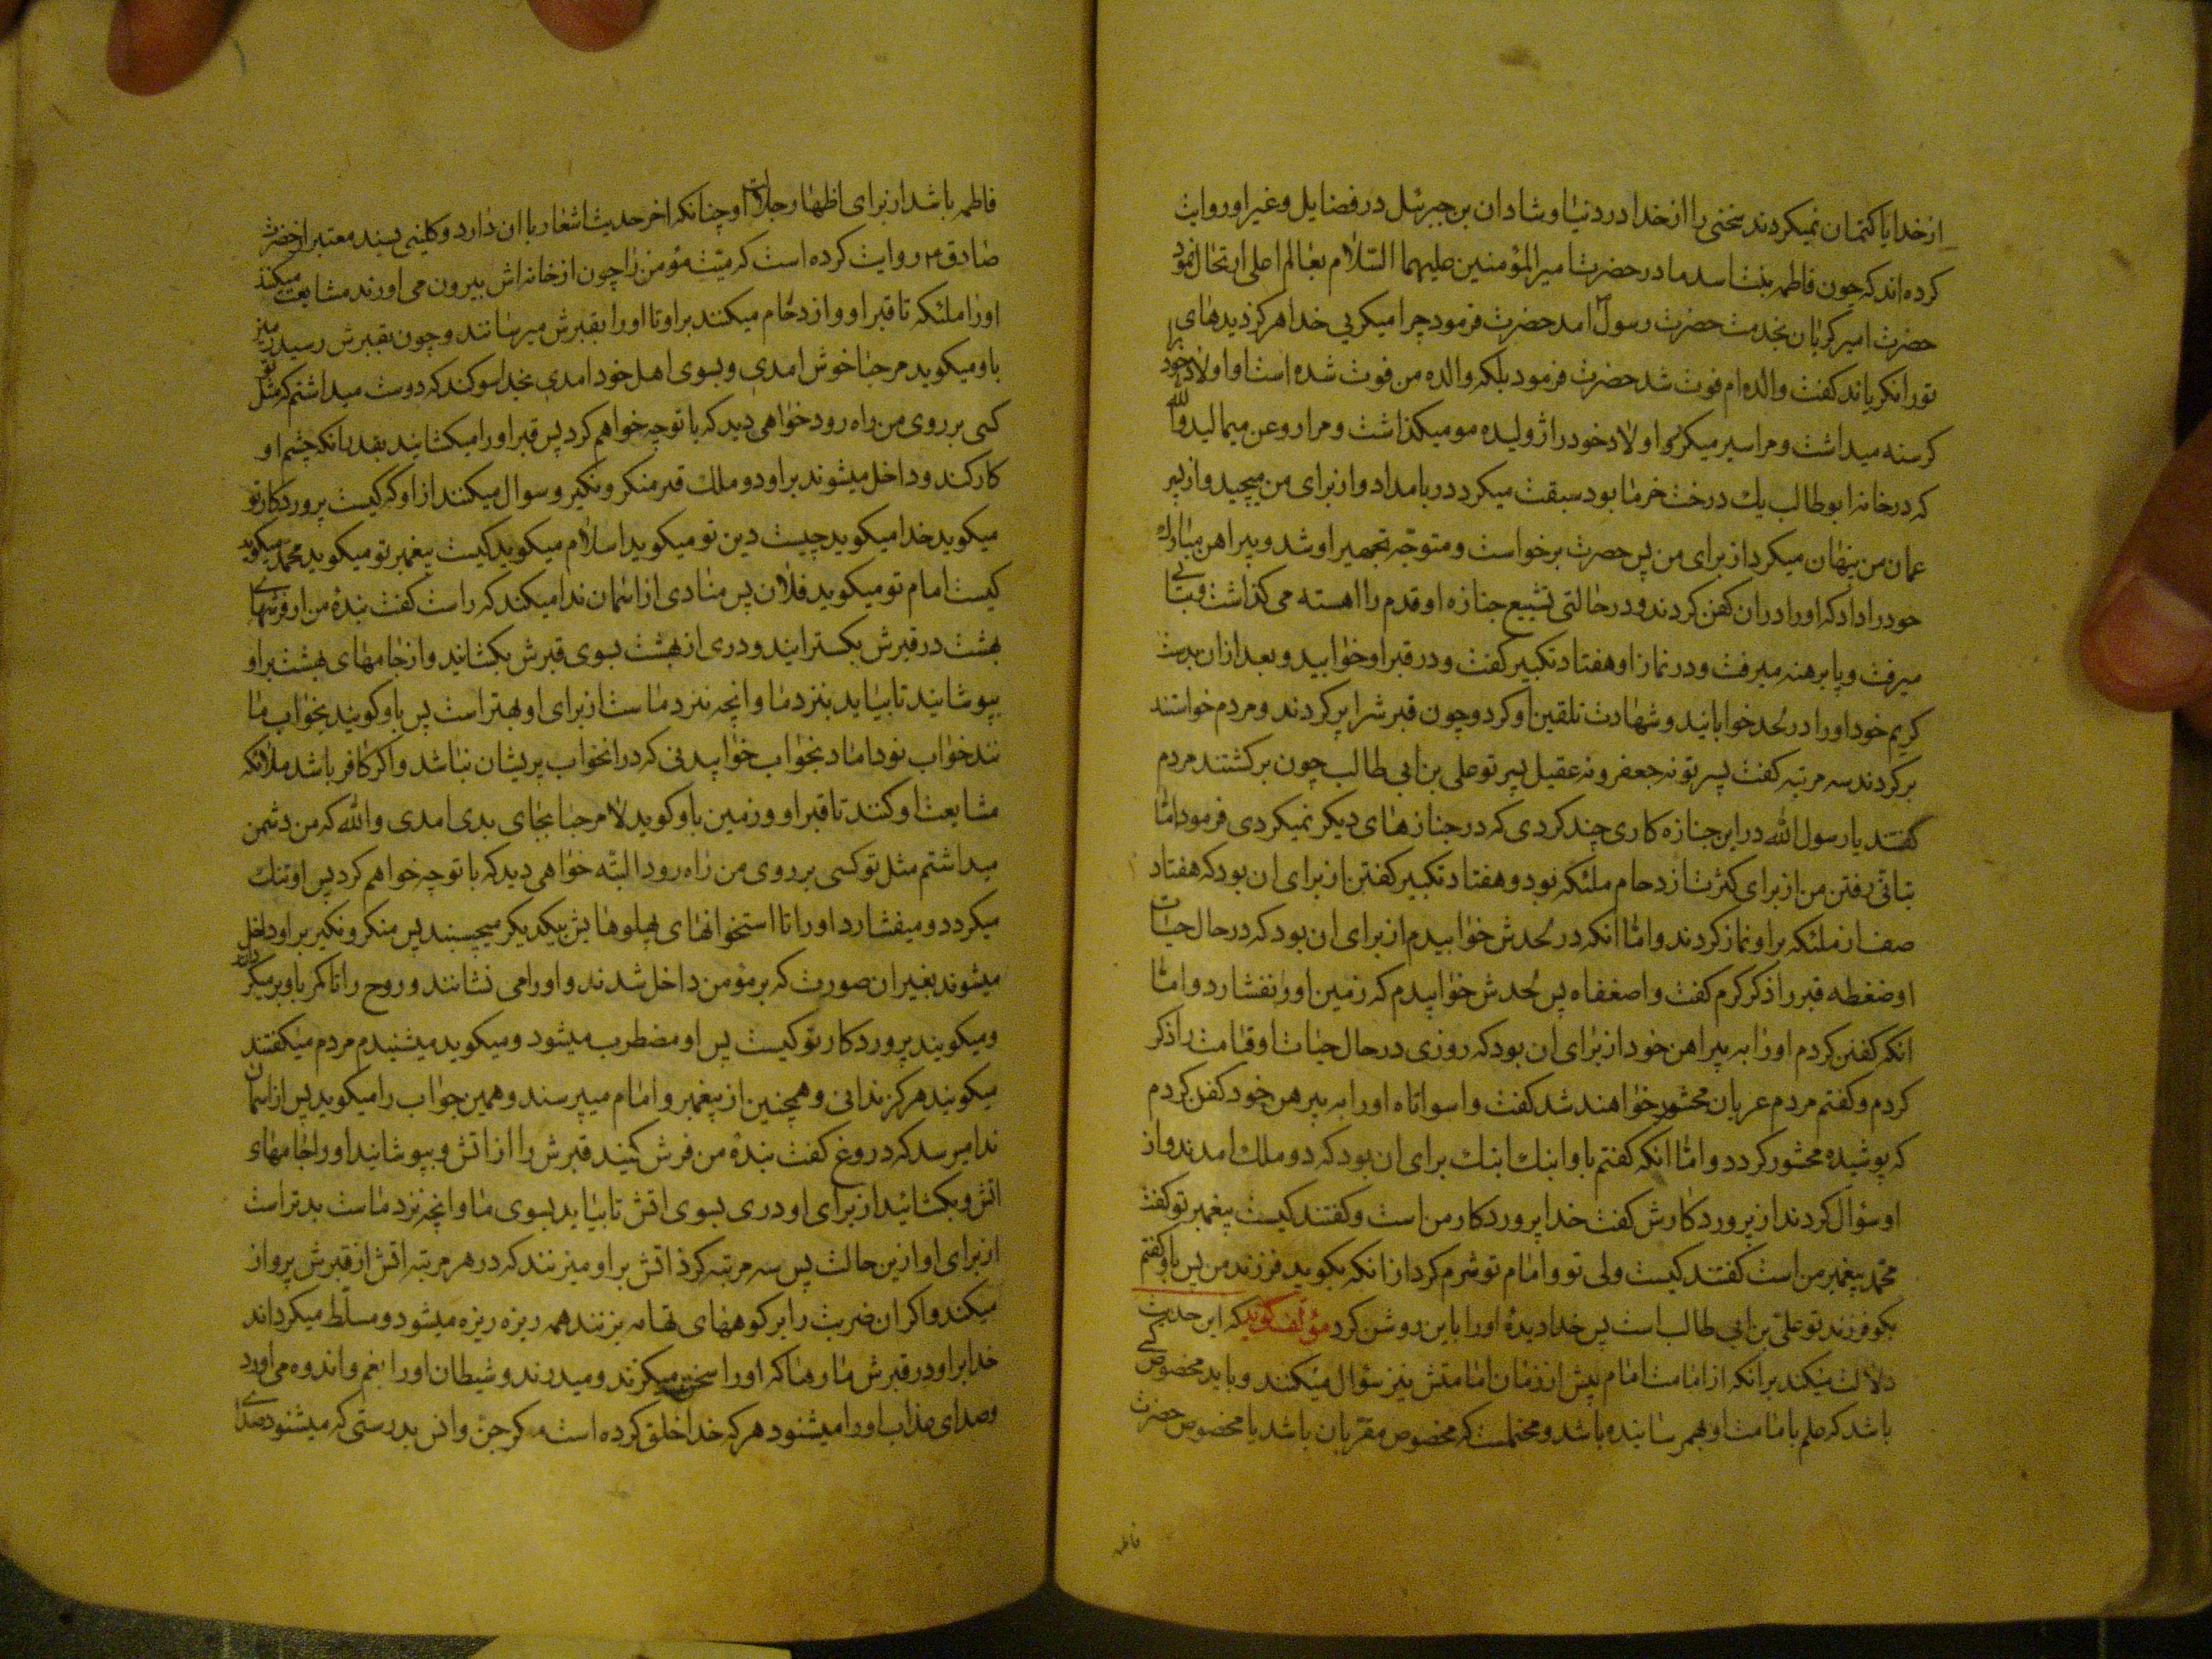 از خدایا کتمان نمیکردند سخنی را از خدا در دنیا و شاذان بن جبرئیل در فضایل و غیر او روایت
کرده‌اند که چون فاطمه بنت اسد مادر حضرت امیر المؤمنین علیهما السّلام بعالم اعلی ارتحال نمود
حضرت امیر کریان بخدمت حضرت رسول امد حضرت فرمود چرا میکریی خدا هرکز دیدهای
تو را نکریاند کفت والده‌ام فوت شد حضرت فرمود بلکه والده من فوت شده است او اولاد خود را
کرسنه میداشت و مرا سیر میکرد و اولاد خود را ژولیده مو میکذاشت و مرا روغن میمالید والله
که در خانه ابوطالب یك درخت خرما بود سبقت میکرد در بامداد و از برای من میچید و از پسر
عمان من پنهان میکرد از برای من پس حضرت برخواست و متوجّه تجهیز او شد و پیراهن مبارك
خود را داد که او را در ان کفن کردند و در حالتی تشییع جنازه او قدم را اهسته می کذاشت و بتانی
میرفت و پا برهنه میرفت و در نماز او هفتاد تکبیر کفت و در قبر او خوابید و بعد از ان بدست
کریم خود او را در لحد خوابانید و شهادت تلقین او کرد و چون قبرش را پر کردند و مردم خواستند
برکردند سه مرتبه کفت پسر تو نه جعفر و نه عقیل پسر تو علی بن ابی طالب چون برکشتند مردم
کفتند یا رسول الله در این جنازه کاری چند کردی که در جنازهای دیکر نمیکردی فرمود امّا
بتانّی رفتن من از برای کثرت ازدحام ملئکه بود و هفتاد تکبیر کفتن از برای ان بود که هفتاد
صف از ملئکه بر او نماز کردند و امّا انکه در لحدش خوابیدم از برای ان بود که در حال حیات
او ضغطه قبر را ذکر کرم کفت واضعفاه پس لحدش خوابیدم که زمین او را نفشارد و امّا
انکه کفن کردم او را به پیراهن خود از برای ان بود که روزی در حال حیات او قیامت را ذکر
کردم و کفتم مردم عریان محشور خواهند شد کفت واسواتاه او را به پیرهن خود کفن کردم
که پوشیده محشور کردد و امّا انکه کفتم باو ابنك ابنك برای ان بود که دو ملك امدند و از
او سؤال کردند از پروردکارش کفت خدا پروردکار من است و کفتند کیست پیغمبر تو کفت
محمّد پیغمبر من است کفتند کیست ولی تو و امام تو شرم کرد از انکه بکوید فرزند من پس باو کفتم
بکو فرزند تو علیّ بن ابی طالب است پس خدا دیدهٔ او را باین روشن کرد مؤلف کوید که این حدیث
دلالت میکند بر انکه از امامت امام پیش از زمان امامتش نیز سؤال میکنند و باید مخصوص کسی
باشد که علم بامامت او بهم رسانیده باشد و محتملست که مخصوص مقرّبان باشد یا مخصوص حضرت
فاطمه
فاطمه باشد از برای اظهار جلالت او چنانکه اخر حدیث اشعار باان دارد و کلینی بسند معتبر از حضرت
صادق م روایت کرده است که میّت مؤمن را چون از خانه‌اش بیرون می اورند مشایعت میکند
او را ملئکه تا قبر او و ازدحام میکنند بر او تا او را بقبرش میرسانند و چون بقبرش رسید زمین
باو میکوید مرحبا خوش امدی و بسوی اهل خود امدی بخدا سوکند که دوست میداشتم که مثل تو
کسی بر روی من راه رود خواهی دید که با تو چه خواهم کرد پس قبر او را میکشانید بقدر انکه چشم او
کار کند و داخل میشوند بر او دو ملك قبر منکر و نکیر و سوال میکنند از او که کیست پروردکار تو
میکوید خدا میکوید چیست دین تو میکوید اسلام میکوید کیست پیغمبر تو میکوید محمّد میکوید
کیست امام تو میکوید فلان پس منادی از اسمان ندا میکند که راست کفت بندهٔ من از فرشهای
بهشت در قبرش بکسترانید و دری از بهشت بسوی قبرش بکشانید و از جامهای بهشت بر او
بپوشانید تا بیاید بنزد ما و انچه نزد ماست از برای او بهتر است پس باو کویند بخواب مانند
خواب نو داماد بخواب خوابیدنی که در انخواب پریشان نباشد و اکر کافر باشد ملائکه
مشایعت او کنند تا قبر او و زمین باو کوید لا مرحبا بجای بدی امدی والله که من دشمن
میداشتم مثل تو کسی بر روی من راه رود البتّه خواهی دید که با تو چه خواهم کرد پس او تنك
میکردد و میفشارد او را تا استخوانهای پهلوهایش بیکدیکر میچسبند پس منکر و نکیر بر او داخل
میشوند بغیر ان صورت که بر مؤمن داخل شدند و او را می نشانند و روح را تا کمر باو بر میکردانند
و میکویند پروردکار تو کیست پس او مضطرب میشود و میکوید میشنیدم مردم میکفتند
میکویند هرکز ندانی و همچنین از پیغمبر و امام میپرسند و همین جواب را میکوید پس از اسمان
ندا میرسد که دروغ کفت بندهٔ من فرش کنید قبرش را از اتش و بپوشانید او را جامهای
اتش و بکشائید از برای او دری بسوی اتش تا بیاید بسوی ما و انچه نزد ماست بدتر است
از برای او از این حالت پس سه مرتبه کرز اتش بر او میزنند که در هر مرتبه اتش از قبرش پرواز
میکند و اکر ان ضربت را بر کوههای تهامه بزنند همه ریزه ریزه میشود و مسلّط میکرداند
خدا بر او در قبرش مارها که او را سخت میکزند و میدرند و شیطان او را بغم و اندوه می اورد
و صدای عذاب او را میشنود هر که خدا خلق کرده است مکر جن و انس بدرستی که میشنود صدای